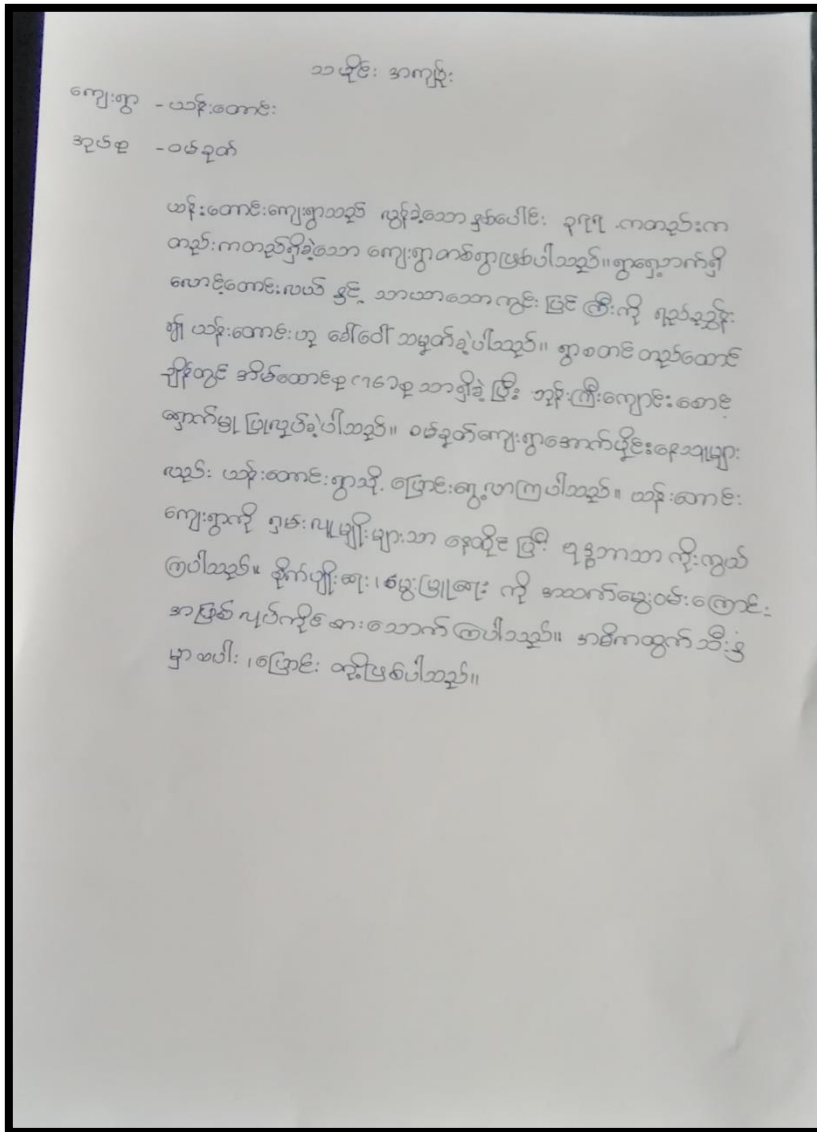 သမိုင်း အကျဉ်း
ကျေးရွာ - ယန်းတောင်း
အုပ်စု - ဝမ်ခုတ်
ယန်းတောင်းကျေးရွာသည် လွန်ခဲ့သော နှစ်ပေါင်း ၃၅၅ ကတည်းက
တည်းကတည်ရှိခဲ့သော ကျေးရွာတစ်ရွာဖြစ်ပါသည်။ ရွာရှေ့ဘက်ရှိ
လောင့်တောင်းလယ် နှင့် သာယာသော ကွင်းပြင်ကြီးကို ရည်ညွှန်း
၍ ယန်းတောင်းဟု ခေါ်ဝေါ် သမုတ်ခဲ့ပါသည်။ ရွာစတင် တည်ထောင်
ချိန်တွင် အိမ်ထောင်စု သာရှိခဲ့ပြီး ဘုန်းကြီးကျောင်း စောင့်
ရှောက်မှု ပြုလုပ်ခဲ့ပါသည်။ ဝမ်ခုတ်ကျေးရွာအောက်ပိုင်းနေသူများ
လည်း ယန်းတောင်းရွာသို့ ပြောင်းရွေ့လာကြပါသည်။ ယန်းတောင်း
ကျေးရွာကို ရှမ်းလူမျိုးများသာ နေထိုင်ပြီး ဗုဒ္ဓဘာသာ ကိုးကွယ်
ကြပါသည်။ စိုက်ပျိုးရေး၊ မွေးမြူရေး ကို အသက်မွေးဝမ်းကြောင်း
အဖြစ် လုပ်ကိုင် စားသောက်ကြပါသည်။ အဓိကထွက်သီးနှံ
မှာ စပါး၊ ပြောင်း တို့ဖြစ်ပါသည်။